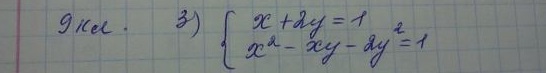 9 кл. 3) { x + 2y = 1
x² - xy - 2y² = 1